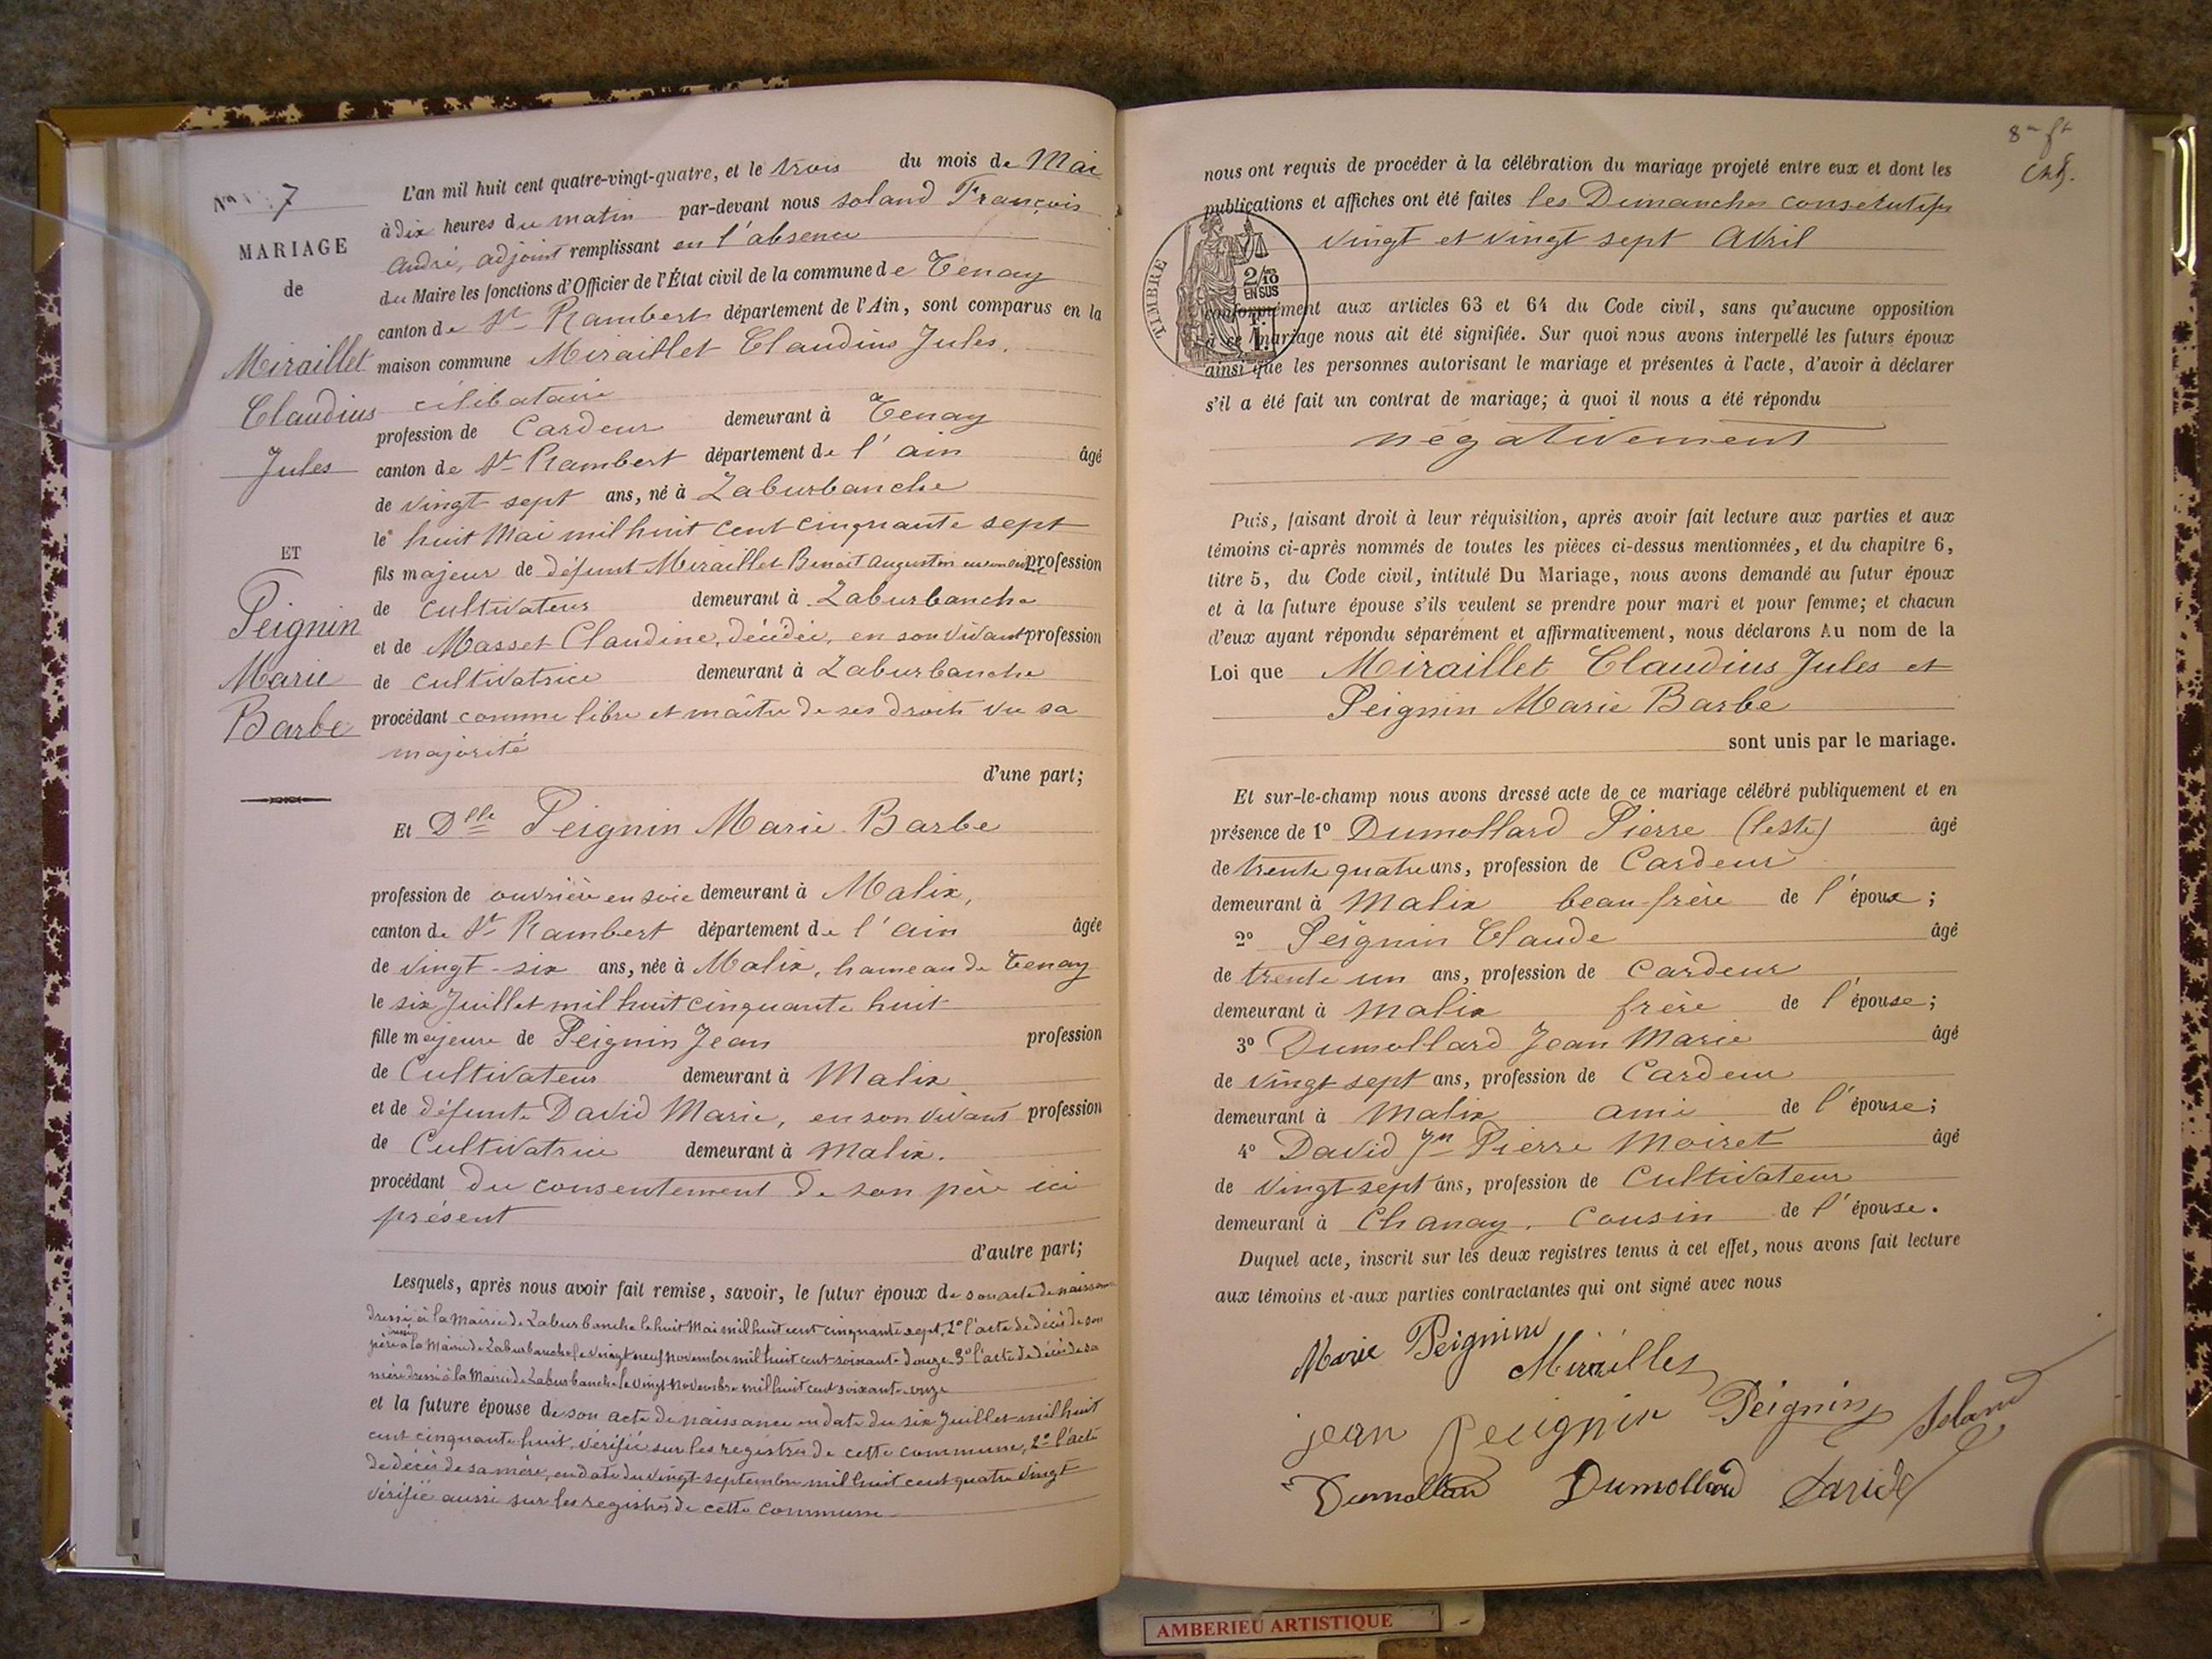 No 7
MARIAGE
de
Miraillet
Claudius
Jules
ET
Peignin
Marie
Barbe
L'an mil huit cent quatre-vingt-quatre, et le trois du mois de Mai
à dix heures du matin par-devant nous soland François
André, adjoint remplissant en l'absence
du Maire les fonctions d'Officier de l'État civil de la commune de Tenay
canton de St Rambert département de l'Ain, sont comparus en la
maison commune Miraillet Claudius Jules,
célibataire
profession de Cardeur demeurant à Tenay
canton de St Rambert département de l'ain âgé
de vingt sept ans, né à Laburbanche
le huit Mai mil huit cent cinquante sept
fils majeur de défunt Miraillet Benoit Augustin profession
de cultivateur demeurant à Laburbanche
et de Masset Claudine, décédée, en son vivant profession
de cultivatrice demeurant à Laburbanche
procédant comme libre et maître de ses droits vu sa
majorité
d'une part;
Et Dlle Peignin Marie Barbe
profession de ouvrière en soie demeurant à Malix,
canton de St Rambert département de l'ain âgée
de vingt-six ans, née à Malix, hameau de Tenay
le six Juillet mil huit cinquante huit
fille majeure de Peignin Jean profession
de Cultivateur demeurant à Malix
et de défunte David Marie, en son vivant profession
de Cultivatrice demeurant à Malix.
procédant du consentement de son père ici
présent
d'autre part;
Lesquels, après nous avoir fait remise, savoir, le futur époux de son acte de naissance
dressé à la Mairie de Laburbanche le huit Mai mil huit cent cinquante sept, 2º l'acte de décès de son
père dressé à la Mairie de Laburbanche le vingt neuf novembre mil huit cent soixante douze 3º l'acte de décès de sa
mère dressé à la Mairie de Laburbanche le vingt novembre mil huit cent soixante onze
et la future épouse de son acte de naissance en date du six Juillet mil huit
cent cinquante huit, vérifié sur les registres de cette commune, 2º l'acte
de décès de sa mère, en date du vingt septembre mil huit cent quatre vingt
vérifié aussi sur les registres de cette commune
nous ont requis de procéder à la célébration du mariage projeté entre eux et dont les
publications et affiches ont été faites les Dimanches consécutifs
vingt et vingt sept Avril
TIMBRE
2/10
EN SUS
conformément aux articles 63 et 64 du Code civil, sans qu'aucune opposition
à ce mariage nous ait été signifiée. Sur quoi nous avons interpellé les futurs époux
ainsi que les personnes autorisant le mariage et présentes à l'acte, d'avoir à déclarer
s'il a été fait un contrat de mariage; à quoi il nous a été répondu
négativement
Puis, faisant droit à leur réquisition, après avoir fait lecture aux parties et aux
témoins ci-après nommés de toutes les pièces ci-dessus mentionnées, et du chapitre 6,
titre 5, du Code civil, intitulé Du Mariage, nous avons demandé au futur époux
et à la future épouse s'ils veulent se prendre pour mari et pour femme; et chacun
d'eux ayant répondu séparément et affirmativement, nous déclarons Au nom de la
Loi que Miraillet Claudius Jules et
Peignin Marie Barbe
sont unis par le mariage.
Et sur-le-champ nous avons dressé acte de ce mariage célébré publiquement et en
présence de 1º Dumollard Pierre (leste) âgé
de trente quatre ans, profession de Cardeur
demeurant à Malix beau-frère de l'époux;
2º Peignin Claude âgé
de trente un ans, profession de Cardeur
demeurant à Malix frère de l'épouse;
3º Dumollard Jean Marie âgé
de vingt sept ans, profession de Cardeur
demeurant à Malix ami de l'épouse;
4º David Jn Pierre Moiret âgé
de vingt sept ans, profession de Cultivateur
demeurant à Chanay. Cousin de l'épouse.
Duquel acte, inscrit sur les deux registres tenus à cet effet, nous avons fait lecture
aux témoins et aux parties contractantes qui ont signé avec nous
Marie Peignin
Miraillet
jean Peeignin Peignin Soland
Dumollard Dumollard David
AMBERIEU ARTISTIQUE